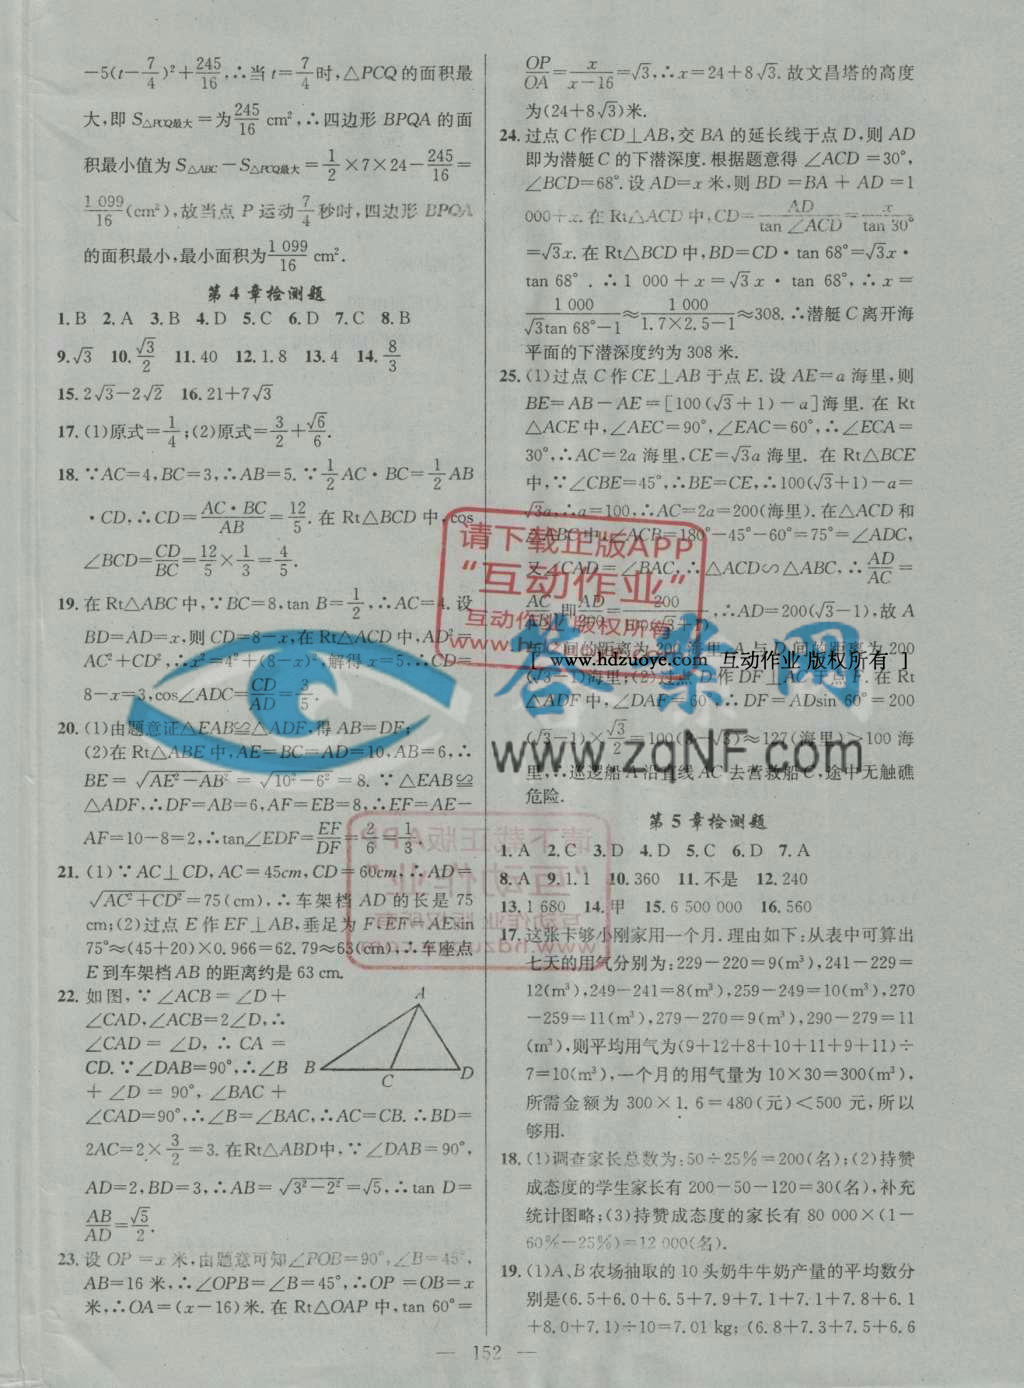 −5(t−7/4)²+245/16,∴当 t=7/4时,△PCQ的面积最
大,即 S△PCQ最大=为245/16 cm²,∴四边形 BPQA 的面
积最小值为 S△ABC−S△PCQ最大=1/2×7×24−245/16=
1 099/16(cm²),故当点 P 运动7/4秒时,四边形 BPQA
的面积最小,最小面积为1 099/16 cm².
第4章检测题
1.B 2.A 3.B 4.D 5.C 6.D 7.C 8.B
9.√3 10.√3/2 11.40 12.1.8 13.4 14.8/3
15.2√3−2√2 16.21+7√3
17.(1)原式=1/4;(2)原式=3/2+√6/6.
18.∵AC=4,BC=3,∴AB=5.∵1/2AC·BC=1/2AB
·CD,∴CD=AC·BC/AB=12/5.在 Rt△BCD 中,cos
∠BCD=CD/BC=12/5×1/3=4/5.
19.在 Rt△ABC 中,∵BC=8,tan B=1/2,∴AC=4.设
BD=AD=x,则 CD=8−x,在 Rt△ACD 中,AD²=
AC²+CD²,∴x²=4²+(8−x)²,解得 x=5.∴CD=
8−x=3,cos∠ADC=CD/AD=3/5.
20.(1)由题意证△EAB≌△ADF,得 AB=DF;
(2)在 Rt△ABE 中,AE=BC=AD=10,AB=6,∴
BE=√(AE²−AB²)=√(10²−6²)=8.∵△EAB≌
△ADF,∴DF=AB=6,AF=EB=8,∴EF=AE−
AF=10−8=2,∴tan∠EDF=EF/DF=2/6=1/3.
21.(1)∵AC⊥CD,AC=45cm,CD=60cm,∴AD=
√(AC²+CD²)=75(cm),∴车架档 AD 的长是 75
cm;(2)过点 E 作 EF⊥AB,垂足为 F,EF=AEsin
75°≈(45+20)×0.966=62.79≈63(cm),∴车座点
E 到车架档 AB 的距离约是 63 cm.
22.如图,∵∠ACB=∠D+
∠CAD,∠ACB=2∠D,∴
∠CAD=∠D,∴CA=
CD.∵∠DAB=90°,∴∠B
+∠D=90°,∠BAC+
∠CAD=90°,∴∠B=∠BAC,∴AC=CB.∴BD=
2AC=2×3/2=3.在 Rt△ABD 中,∵∠DAB=90°,
AD=2,BD=3,∴AB=√(3²−2²)=√5,∴tan D=
AB/AD=√5/2.
A
B
C
D
23.设 OP=x 米,由题意可知∠POB=90°,∠B=45°,
AB=16 米,∴∠OPB=∠B=45°,∴OP=OB=x
米,∴OA=(x−16)米.在 Rt△OAP 中,tan 60°=
OP/OA=x/(x−16)=√3,∴x=24+8√3.故文昌塔的高度
为(24+8√3)米.
24.过点 C 作CD⊥AB,交 BA 的延长线于点 D,则 AD
即为潜艇C的下潜深度.根据题意得∠ACD=30°,
∠BCD=68°.设 AD=x 米,则 BD=BA+AD=1
000+x.在 Rt△ACD 中,CD=AD/tan∠ACD=x/tan 30°
=√3x.在 Rt△BCD 中,BD=CD·tan 68°=√3x·
tan 68°.∴1 000+x=√3x·tan 68°,∴x=
1 000/(√3tan 68°−1)≈1 000/(1.7×2.5−1)≈308.∴潜艇 C 离开海
平面的下潜深度约为 308 米.
25.(1)过点 C 作 CE⊥AB 于点 E.设 AE=a 海里,则
BE=AB−AE=[100(√3+1)−a]海里.在 Rt
△ACE 中,∠AEC=90°,∠EAC=60°,∴∠ECA=
30°,∴AC=2a 海里,CE=√3a 海里.在 Rt△BCE
中,∵∠CBE=45°,∴BE=CE,∴100(√3+1)−a=
√3a,∴a=100,∴AC=2a=200(海里).在△ACD 和
△ABC 中,∠ACB=180°−45°−60°=75°=∠ADC,
又∠CAD=∠BAC,∴△ACD∽△ABC,∴AD/AC=
AC/AB,即AD/200=200/100(√3+1),∴AD=200(√3−1),故 A
与 C 间的距离为 200 海里,A 与 D 间的距离为 200
(√3−1)海里;(2)过点 D 作 DF⊥AC 于点 F.在 Rt
△ADF 中,∠DAF=60°,∴DF=ADsin 60°=200
(√3−1)×√3/2=100(3−√3)≈127(海里)>100 海
里,∴巡逻船 A 沿直线 AC 去营救船 C,途中无触礁
危险.
第5章检测题
1.A 2.C 3.D 4.D 5.C 6.D 7.A
8.A 9.1.1 10.360 11.不是 12.240
13.1 680 14.甲 15.6 500 000 16.560
17.这张卡够小刚家用一个月.理由如下:从表中可算出
七天的用气分别为:229−220=9(m³),241−229=
12(m³),249−241=8(m³),259−249=10(m³),270
−259=11(m³),279−270=9(m³),290−279=11
(m³),则平均用气为(9+12+8+10+11+9+11)÷
7=10(m³),一个月的用气量为 10×30=300(m³),
所需金额为 300×1.6=480(元)<500 元,所以
够用.
18.(1)调查家长总数为:50÷25%=200(名);(2)持赞
成态度的学生家长有 200−50−120=30(名),补充
统计图略;(3)持赞成态度的家长有 80 000×(1−
60%−25%)=12 000(名).
19.(1)A、B 农场抽取的 10 头奶牛牛奶产量的平均数分
别是(6.5+6.0+6.5+7.9+7.1+7.1+7.8+6.1
+8.0+7.1)÷10=7.01 kg;(6.8+7.3+7.5+6.6
— 152 —
请下载正版APP
“互动作业”
互动作业 版权所有
www.hdzuoye.com
答案网
www.zqNF.com
[ www.hdzuoye.com 互动作业 版权所有 ]
请下载正版APP
“互动作业”
互动作业 版权所有
www.hdzuoye.com